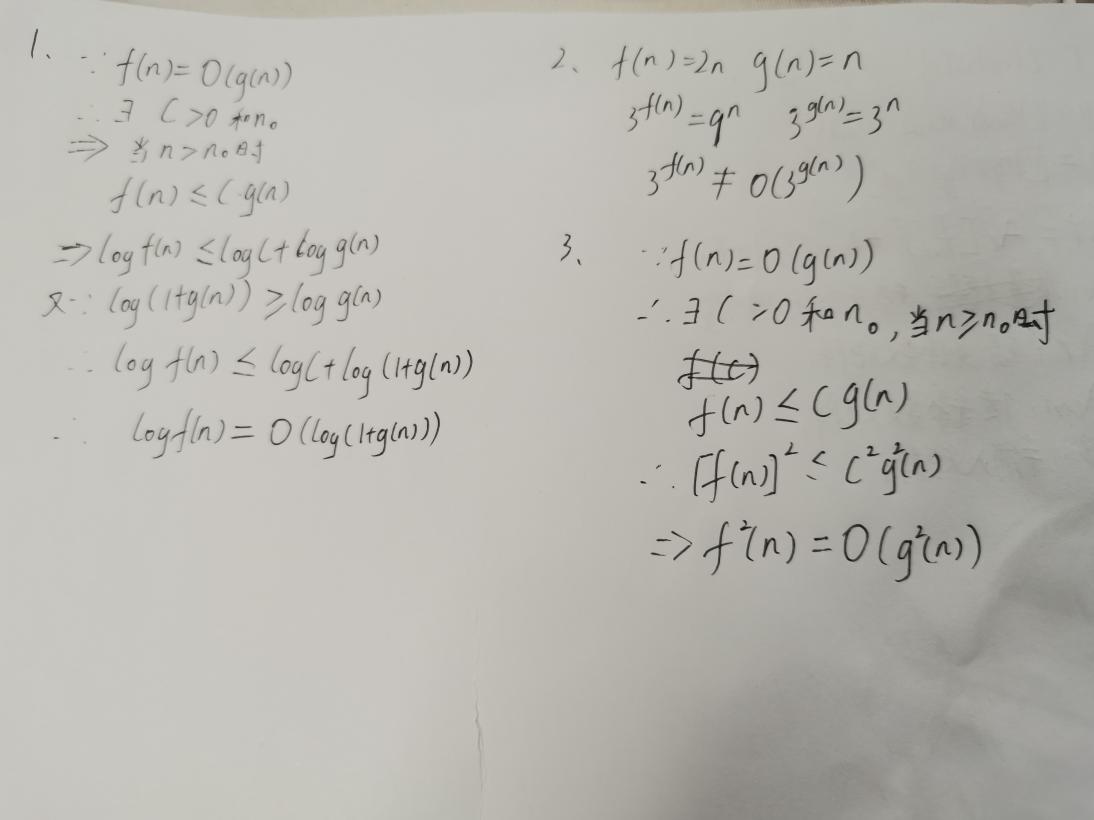 1、 ∵ f(n)=O(g(n))
∴ ∃ C>0 和n₀
⇒ 当n>n₀时
f(n)≤C·g(n)
⇒ log f(n) ≤ log C+ log g(n)
又∵ log(1+g(n)) ≥ log g(n)
∴ log f(n) ≤ log C+ log (1+g(n))
∴ log f(n) = O(log(1+g(n)))
2、 f(n)=2n g(n)=n
3^f(n) = 9^n 3^g(n) = 3^n
3^f(n) ≠ O(3^g(n))
3、 ∵ f(n)=O(g(n))
∴ ∃ C>0 和n₀,当n≥n₀时
f(n) ≤ C g(n)
∴ [f(n)]² ≤ C²g²(n)
⇒ f²(n) = O(g²(n))